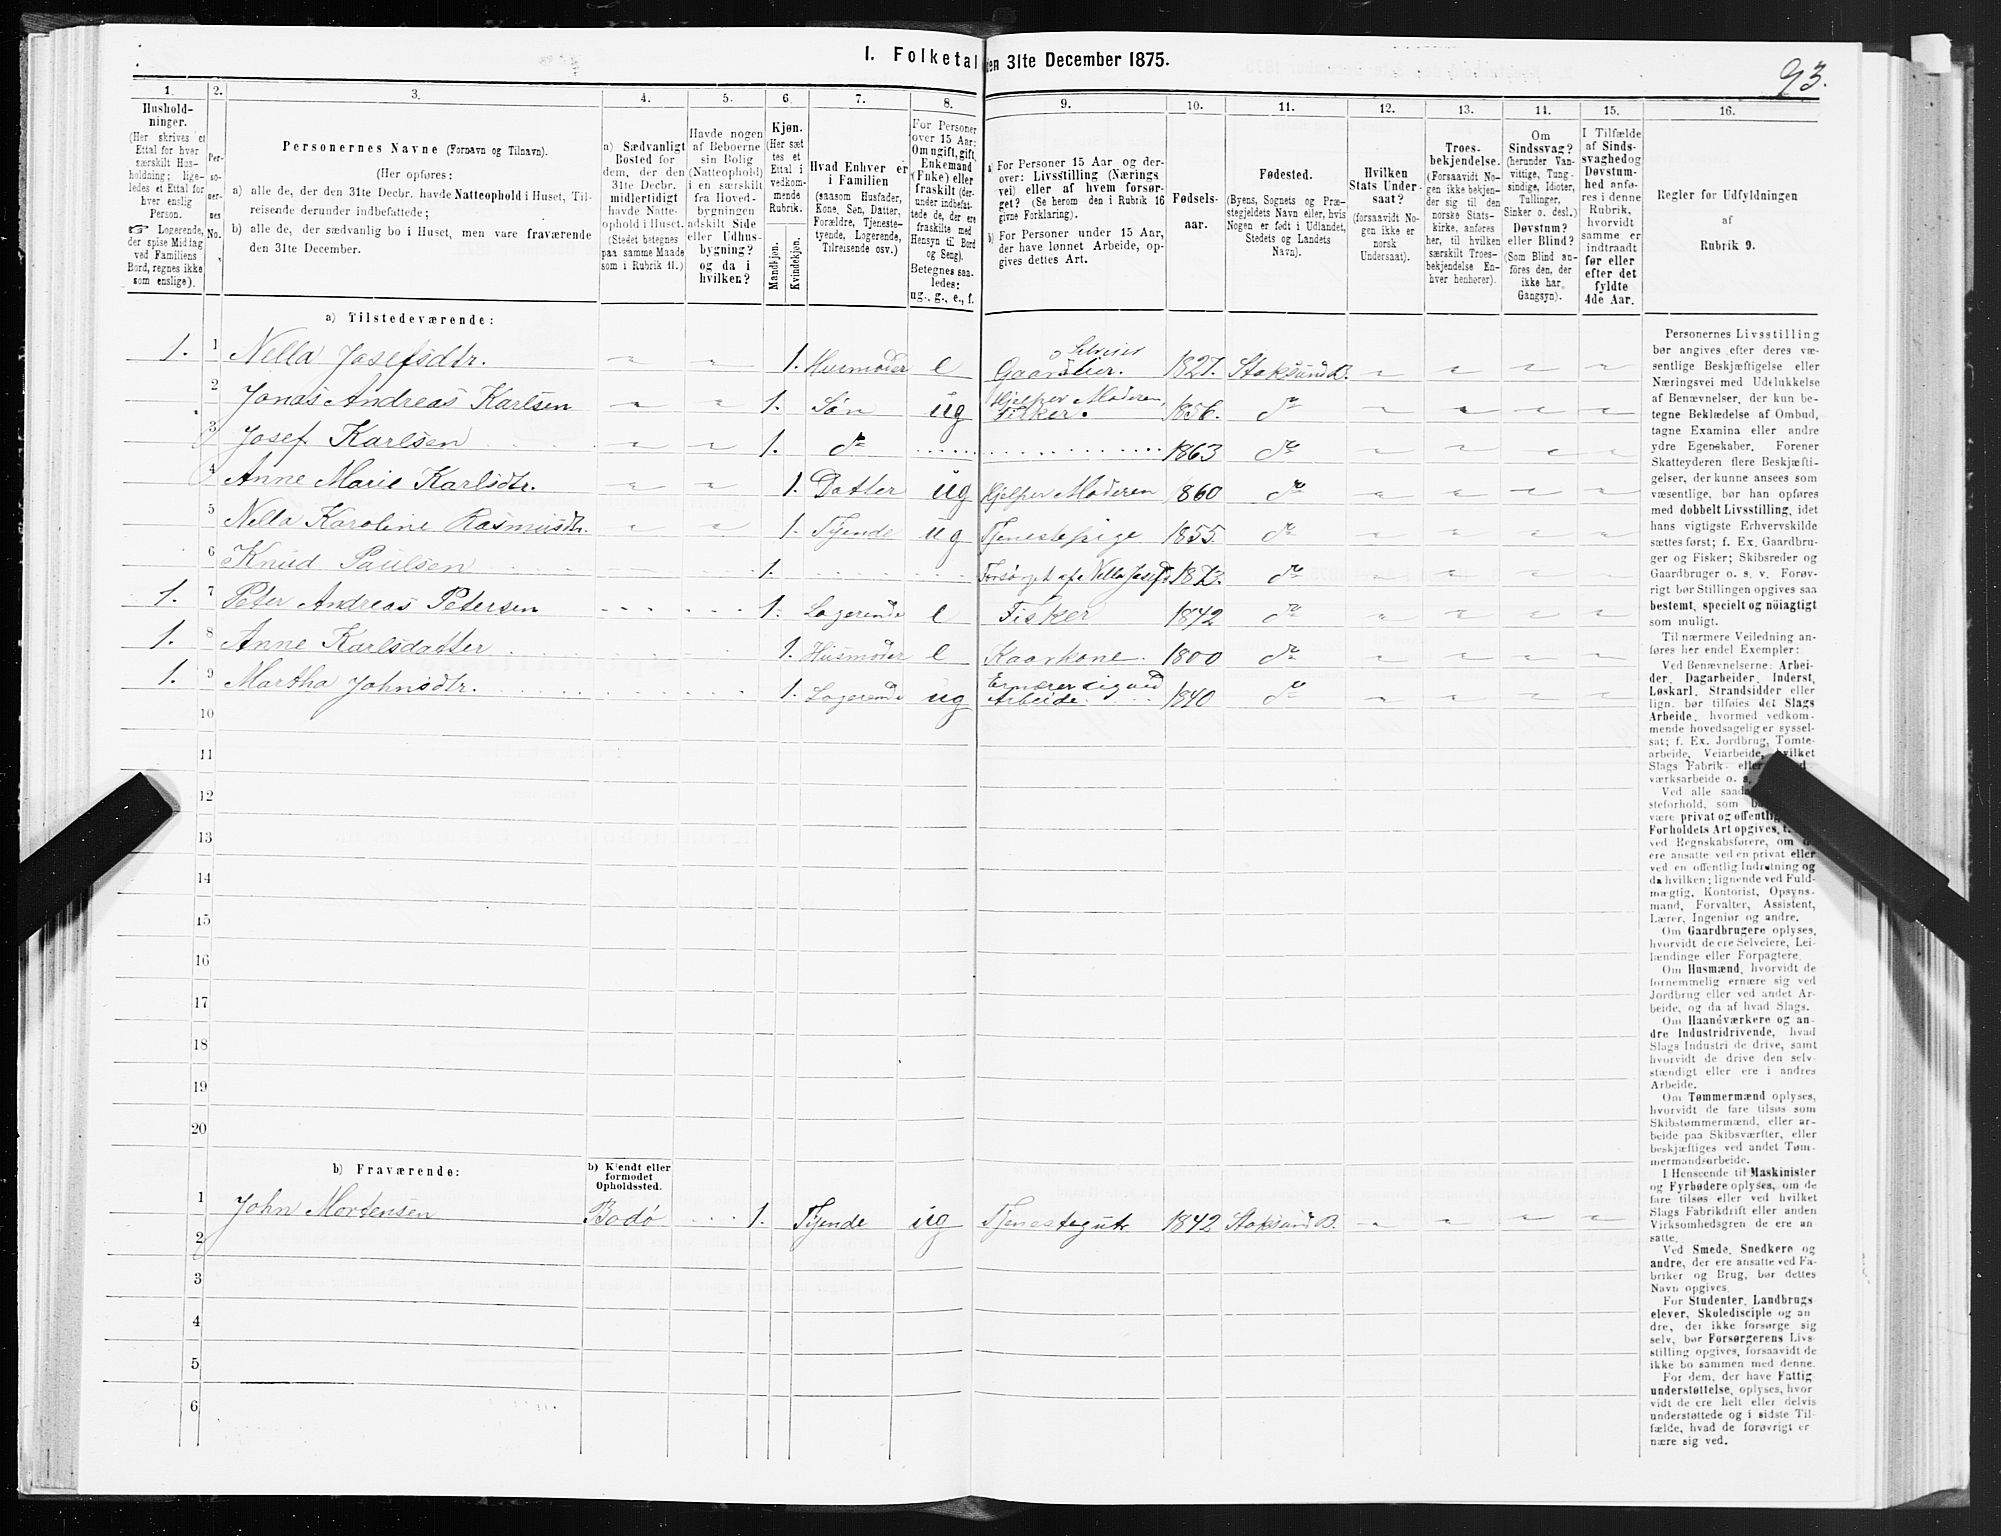 I. Folketal den 31te December 1875.
93.
1.
Hushold-
ninger.
(Her skrives et
Ettal for hver
særskilt Hus-
holdning; lige-
ledes et Ettal for
hver enslig
Person.
☞ Logerende,
der spise Middag
ved Familiens
Bord, regnes ikke
som enslige).
2.
Per-
so-
ner-
nes
No.
3.
Personernes Navne (Fornavn og Tilnavn).
(Her opføres:
a) alle de, der den 31te Decbr. havde Natteophold i Huset, Til-
reisende derunder indbefattede;
b) alle de, der sædvanlig bo i Huset, men vare fraværende
den 31te December.
4.
a) Sædvanligt
Bosted for
dem, der den
31te Decbr.
midlertidigt
havde Natte-
ophold i Huset.
(Stedet betegnes
paa samme Maade
som i Rubrik 11.)
5.
Havde nogen
af Beboerne
sin Bolig
(Natteophold)
i en særskilt
fra Hoved-
bygningen
adskilt Side
eller Udhus-
bygning?
og da i
hvilken?
6.
Kjøn.
(Her sæt
tes et
Ettal i
vedkom-
mende
Rubrik.
Mandkjøn.
Kvindekjøn.
7.
Hvad Enhver er
i Familien
(saasom Husfader,
Kone, Søn, Datter,
Forældre, Tjeneste-
tyende, Logerende,
Tilreisende osv.)
8.
For Personer
over 15 Aar:
Om ugift, gift,
Enkemand
(Enke) eller
fraskilt (der-
under indbefat-
tede de, der ere
fraskilte med
Hensyn til Bord
og Seng).
Betegnes saa-
ledes:
ug., g., e., f.
9.
a) For Personer 15 Aar og der-
over: Livsstilling (Nærings
vei) eller af hvem forsør-
get? (Se herom den i Rubrik 16
givne Forklaring).
b) For Personer under 15 Aar,
der have lønnet Arbeide, op-
gives dettes Art.
10.
Fødsels-
aar.
11.
Fødested.
(Byens, Sognets og Præ-
stegjeldets Navn eller, hvis
Nogen er født i Udlandet,
Stedets og Landets
Navn).
12.
Hvilken
Stats Under-
saat?
(forsaavidt No-
gen ikke er
norsk
Undersaat).
13.
Troes-
bekjendelse.
(Forsaavidt No-
gen ikke bekjen-
der sig til den
norske Stats-
kirke, anføres
her, til hvilken
særskilt Troes-
bekjendelse En-
hver henhører).
14.
Om
Sindssvag?
(herunder Van-
vittige, Tung-
sindige, Idioter,
Tullinger,
Sinker o. desl.)
Døvstum?
eller Blind?
(Som Blind an-
føres den, der
ikke har
Gangsyn).
15.
I Tilfælde
af Sinds-
svaghed og
Døvstum-
hed anfø-
res i denne
Rubrik,
hvorvidt
samme er
indtraadt
før eller
efter det
fyldte
4de Aar.
16.
Regler for Udfyldningen
af
Rubrik 9.
a) Tilstedeværende:
1. 1 Nella Josefsdtr. " " 1. Husmoder e Gaardbr. o Selveier 1827. Stoksund B. " " " "
2 Jonas Andreas Karlsen " " 1. Søn ug Hjelper Moderen, Fisker. 1856. do " " " "
3 Josef Karlsen " " 1. do 1863 do " " " "
4 Anne Marie Karlsdtr. " " 1. Datter ug Hjelper Moderen 1860 do " " " "
5 Nella Karoline Rasmusdtr. " " 1. Tyende ug Tjenestepige 1855. do " " " "
6 Knud Paulsen 1. Forsørget af Nella Josefsd. 1873. do " " " "
1. 7 Peter Andreas Petersen 1. Logerende e Fisker 1842 do " " " "
1. 8 Anne Karlsdatter 1. Husmoder e Kaarkone. 1800 do " " " "
1. 9 Martha Johnsdtr. 1. Logerende ug Ernærer sig ved Arbeide. 1840 do " " " "
10
11
12
13
14
15
16
17
18
19
20
b) Fraværende:
b) Kjendt eller
formodet
Opholdssted.
1 John Mortensen Bodø 1. Tyende ug Tjenestegut 1842 Stoksund B. " " " "
2
3
4
5
6
Personernes Livsstilling
bør angives efter deres væ-
sentlige Beskjæftigelse eller
Næringsvei med Udelukkelse
af Benævnelser, der kun be-
tegne Beklædelse af Ombud,
tagne Examina eller andre
ydre Egenskaber. Forener
Skatteyderen flere Beskjæfti-
gelser, der kunne ansees som
væsentlige, bør han opføres
med dobbelt Livsstilling, idet
hans vigtigste Erhvervskilde
sættes først; f. Ex. Gaardbru-
ger og Fisker; Skibsreder og
Gaardbruger o. s. v. Forøv-
rigt bør Stillingen opgives saa
bestemt, specielt og nøiagtigt
som muligt.
Til nærmere Veiledning an-
føres her endel Exempler:
Ved Benævnelserne: Arbei-
der, Dagarbeider, Inderst,
Løskarl, Strandsidder eller
lign. bør tilføies det Slags
Arbeide, hvormed vedkom-
mende hovedsagelig er syssel-
sat; f. Ex. Jordbrug, Tomte-
arbeide, Veiarbeide, hvilket
Slags Fabrik- eller
værksarbeide o. s.
Ved alle saada
steforhold, som
være privat og offentlig
Forholdets Art opgives, t.
ved Regnskabsførere, om
ere ansatte ved en privat eller
ved en offentlig Indretning og
da hvilken; lignende ved Fuld-
mægtig, Kontorist, Opsyns-
mand, Forvalter, Assistent,
Lærer, Ingeniør og andre.
Om Gaardbrugere oplyses,
hvorvidt de ere Selveiere, Lei-
lændinge eller Forpagtere.
Om Husmænd, hvorvidt de
fornemmelig ernære sig ved
Jordbrug eller ved andet Ar-
beide, og da af hvad Slags.
Om Haandværkere og an-
dre Industridrivende, hvad
Slags Industri de drive, samt
hvorvidt de drive den selv-
stændigt eller ere i andres
Arbeide.
Om Tømmermænd oplyses,
hvorvidt de fare tilsøs som
Skibstømmermænd, eller ar-
beide paa Skibsværfter, eller
beskjæftiges ved andet Tøm-
mermandsarbeide.
I Henseende til Maskinister
og Fyrbødere oplyses, om de
fare tilsøs eller ved hvilket
Slags Fabrikdrift eller anden
Virksomhedsgren de ere an-
satte.
Ved Smede, Snedkere og
andre, der ere ansatte ved Fa-
briker og Brug, bør dettes
Navn opgives.
For Studenter, Landbrugs-
elever, Skoledisciple og an
dre, der ikke forsørge sig
selv, bør Forsørgerens Livs-
stilling opgives, forsaavidt de
ikke bo sammen med denne.
For dem, der have Fattig
understøttelse, oplyses, hvor
vidt de ere helt eller delvis
understøttede og i sidste Til-
fælde, hvad de forøvrigt er
nære sig ved.